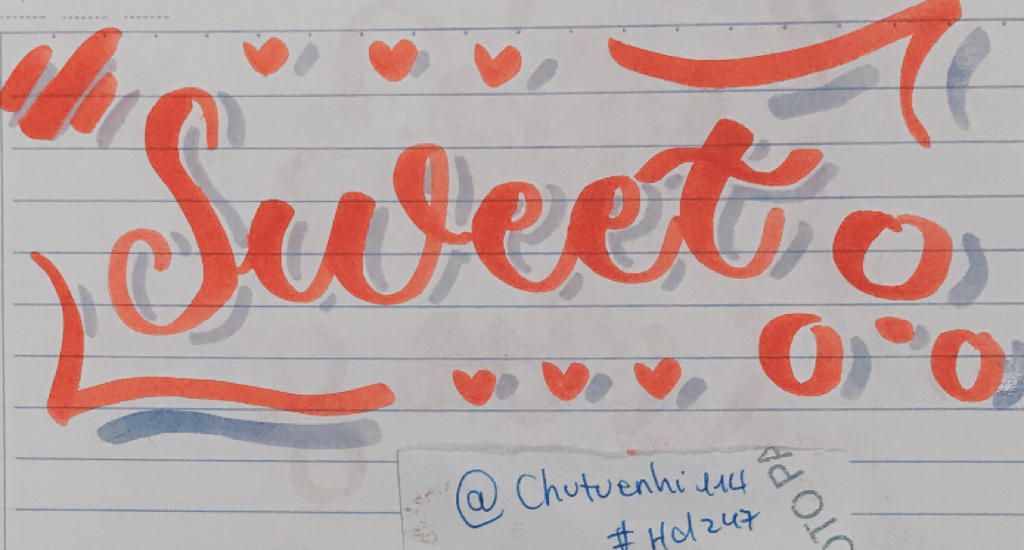 Sweet
@Chutuenhi114
#Hd247
OTO PA